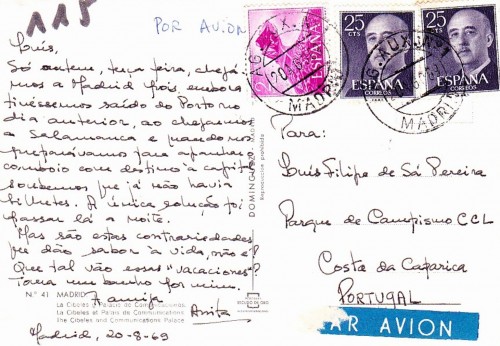 115
POR AVION
Luís,
Só ontem, terça feira, chegá-
mos a Madrid pois, embora
tivéssemos saído do Porto no
dia anterior, ao chegarmos
a Salamanca e quando nos
preparávamos para apanhar o
comboio com destino a capital
soubemos que já não havia
bilhetes. A única solução foi
passar lá a noite.
Mas são estas contrariedades
que dão sabor à vida, não é?
Que tal vão essas "vacaciones"?
Toma um banho por mim.
A amiga
Anita
Madrid, 20-8-69
N.º 41 MADRID
La Cibeles y Palacio de Comunicaciones
La Cibeles et Palais de Communications
The Cibeles and Communications Palace
DOMINGUEZ - MADRID
Reproducción prohibida
ESPAÑA
25
CTS
ESPAÑA
CORREOS
25
CTS
ESPAÑA
CORREOS
MADRID
MADRID
Para:
Luís Filipe de Sá Pereira
Parque de Campismo CCL
Costa da Caparica
PORTUGAL
PAR AVION